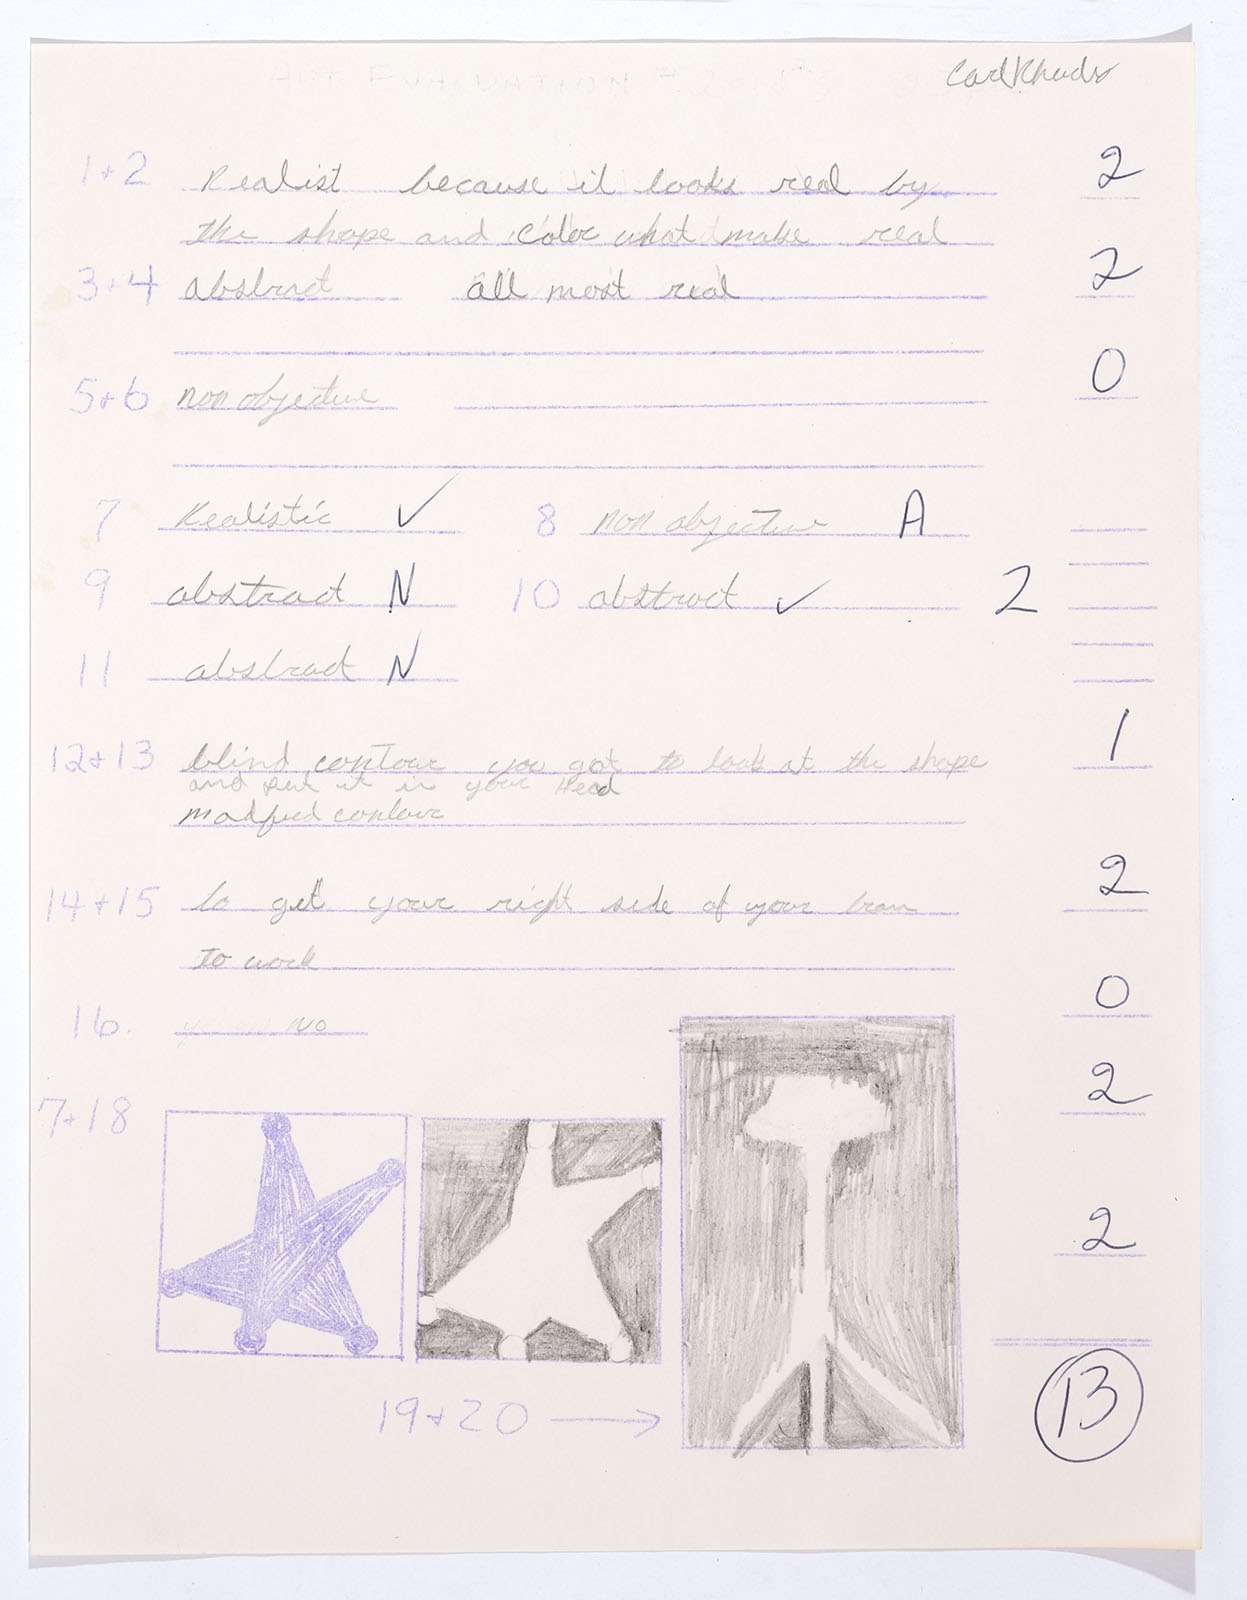 ART EVALUATION
Carl Rhodes
1+2 Realist because it looks real by 2
the shape and color what make real
3+4 abstract all most real 2
5+6 non objective 0
7 Realistic ✓ 8 non objective A
9 abstract N 10 abstract ✓ 2
11 abstract N
12+13 blind contour you got to look at the shape 1
and put it in your Head
modfied contour
14+15 to get your right side of your bran 2
to work
16. no 0
7+18 2
2
19+20 →
13